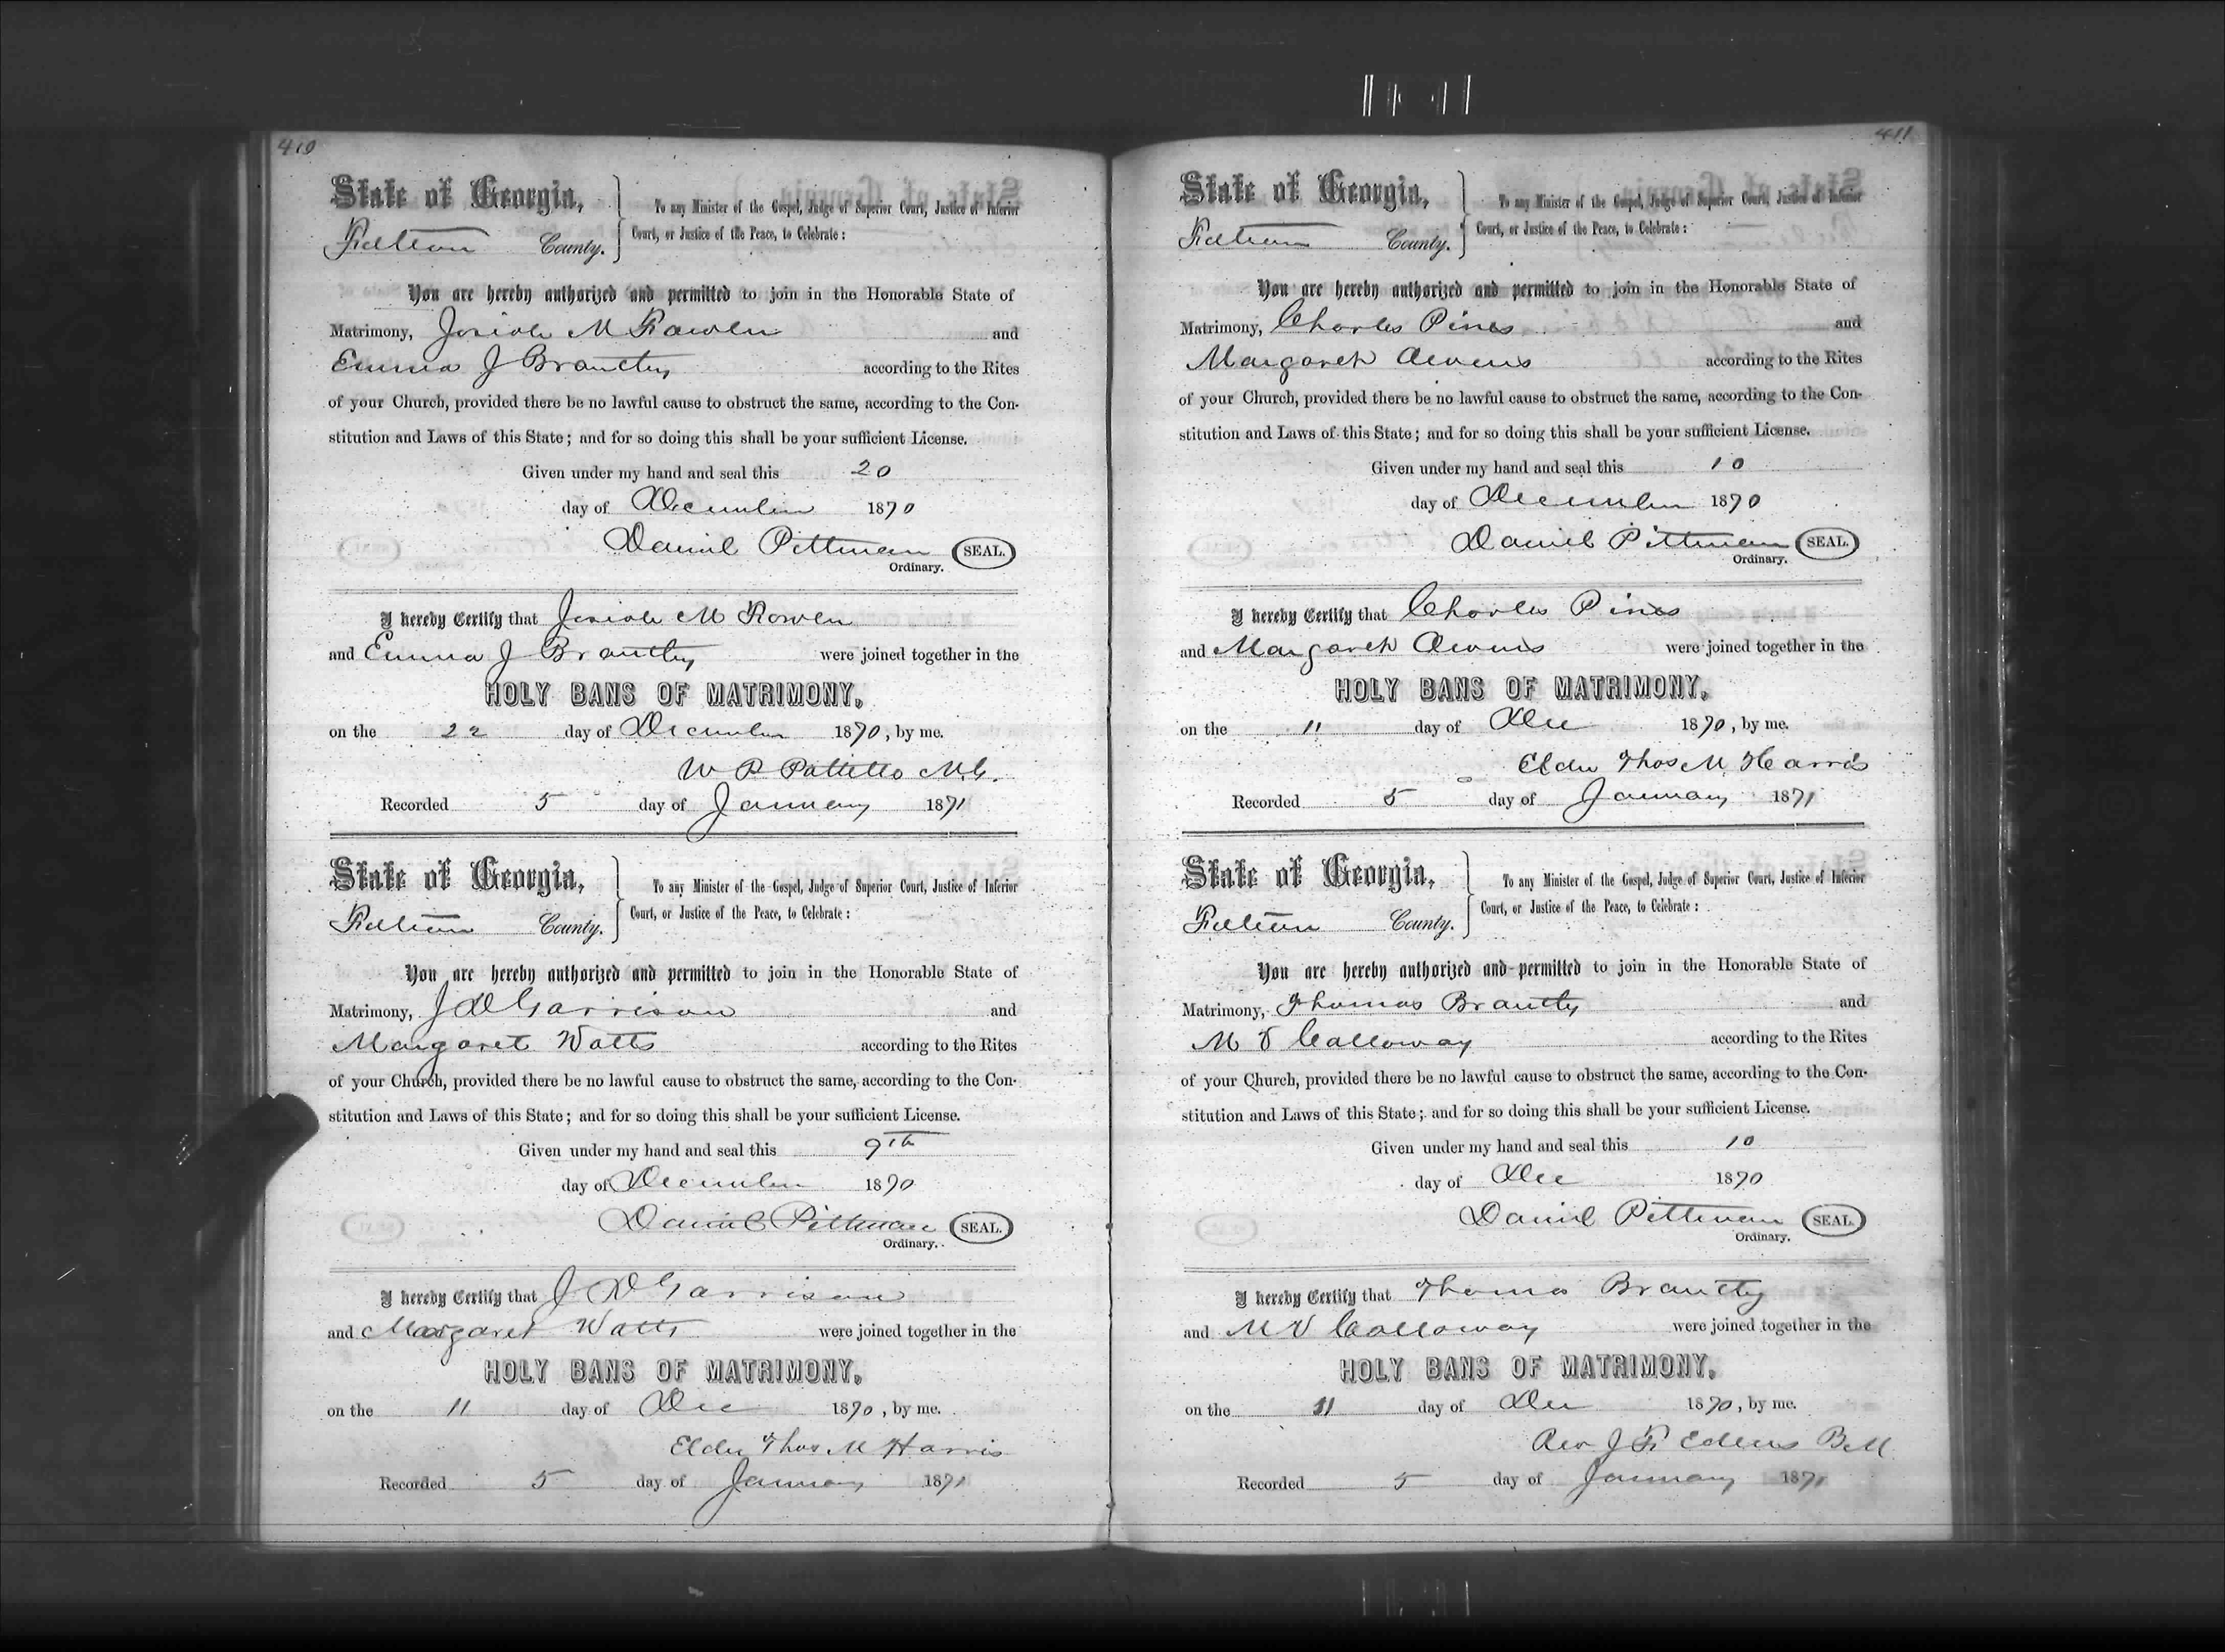 410
State of Georgia,
Fulton County.
To any Minister of the Gospel, Judge of Superior Court, Justice of Inferior
Court, or Justice of the Peace, to Celebrate:
You are hereby authorized and permitted to join in the Honorable State of
Matrimony, Josiah M and
Emma J Brantly according to the Rites
of your Church, provided there be no lawful cause to obstruct the same, according to the Con-
stitution and Laws of this State; and for so doing this shall be your sufficient License.
Given under my hand and seal this 20
day of December 1870
Daniel Pittman SEAL.
Ordinary.
I hereby Certify that Josiah M
and Emma J Brantly were joined together in the
HOLY BANS OF MATRIMONY,
on the 22 day of December 1870, by me.
W P Pattillo M.G.
Recorded 5 day of January 1871
State of Georgia,
Fulton County.
To any Minister of the Gospel, Judge of Superior Court, Justice of Inferior
Court, or Justice of the Peace, to Celebrate:
You are hereby authorized and permitted to join in the Honorable State of
Matrimony, J D Garrison and
Margaret Watts according to the Rites
of your Church, provided there be no lawful cause to obstruct the same, according to the Con-
stitution and Laws of this State; and for so doing this shall be your sufficient License.
Given under my hand and seal this 9th
day of December 1870
Daniel Pittman SEAL.
Ordinary.
I hereby Certify that J D Garrison
and Margaret Watts were joined together in the
HOLY BANS OF MATRIMONY,
on the 11 day of Dec 1870, by me.
Elder Thos M Harris
Recorded 5 day of January 1871
411
State of Georgia,
Fulton County.
To any Minister of the Gospel, Judge of Superior Court, Justice of Inferior
Court, or Justice of the Peace, to Celebrate:
You are hereby authorized and permitted to join in the Honorable State of
Matrimony, Charles Pines and
Margaret Owens according to the Rites
of your Church, provided there be no lawful cause to obstruct the same, according to the Con-
stitution and Laws of this State; and for so doing this shall be your sufficient License.
Given under my hand and seal this 10
day of December 1870
Daniel Pittman SEAL.
Ordinary.
I hereby Certify that Charles Pines
and Margaret Owens were joined together in the
HOLY BANS OF MATRIMONY,
on the 11 day of Dec 1870, by me.
Elder Thos M Harris
Recorded 5 day of January 1871
State of Georgia,
Fulton County.
To any Minister of the Gospel, Judge of Superior Court, Justice of Inferior
Court, or Justice of the Peace, to Celebrate:
You are hereby authorized and permitted to join in the Honorable State of
Matrimony, Thomas Brantly and
M V Calloway according to the Rites
of your Church, provided there be no lawful cause to obstruct the same, according to the Con-
stitution and Laws of this State; and for so doing this shall be your sufficient License.
Given under my hand and seal this 10
day of Dec 1870
Daniel Pittman SEAL.
Ordinary.
I hereby Certify that Thomas Brantly
and M V Calloway were joined together in the
HOLY BANS OF MATRIMONY,
on the 11 day of Dec 1870, by me.
Rev J F Edens
Recorded 5 day of January 1871